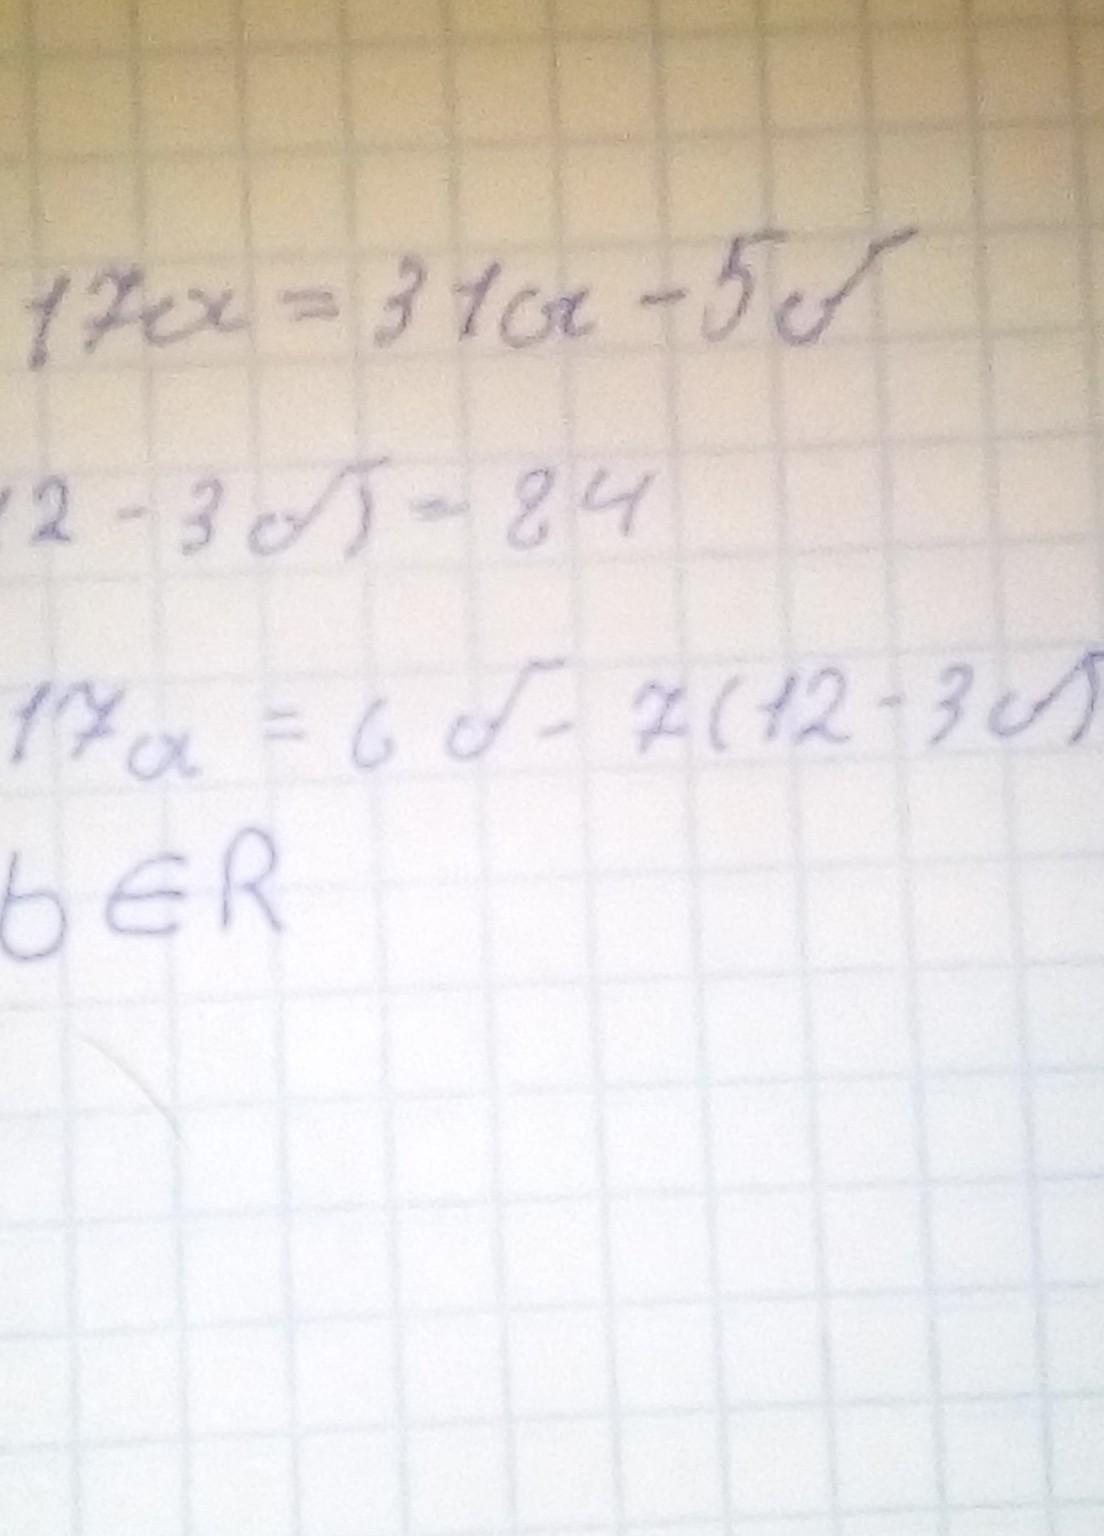 17a = 31a - 5б
12 - 3б) = 84
17a = 6б - 7(12 - 3б)
b ∈ R